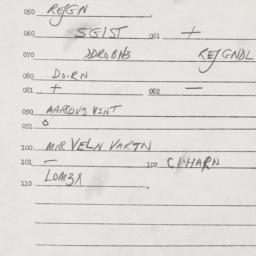 050 REJGN
060 SGIST 061 +
070 DROBNS REJGNDL
080 DO.RN
081 + 082 —
090 MARCOUS VINT
091 o
100 MIR VELN VARTN
101 — 102 CI.HARN
110 LOM3X